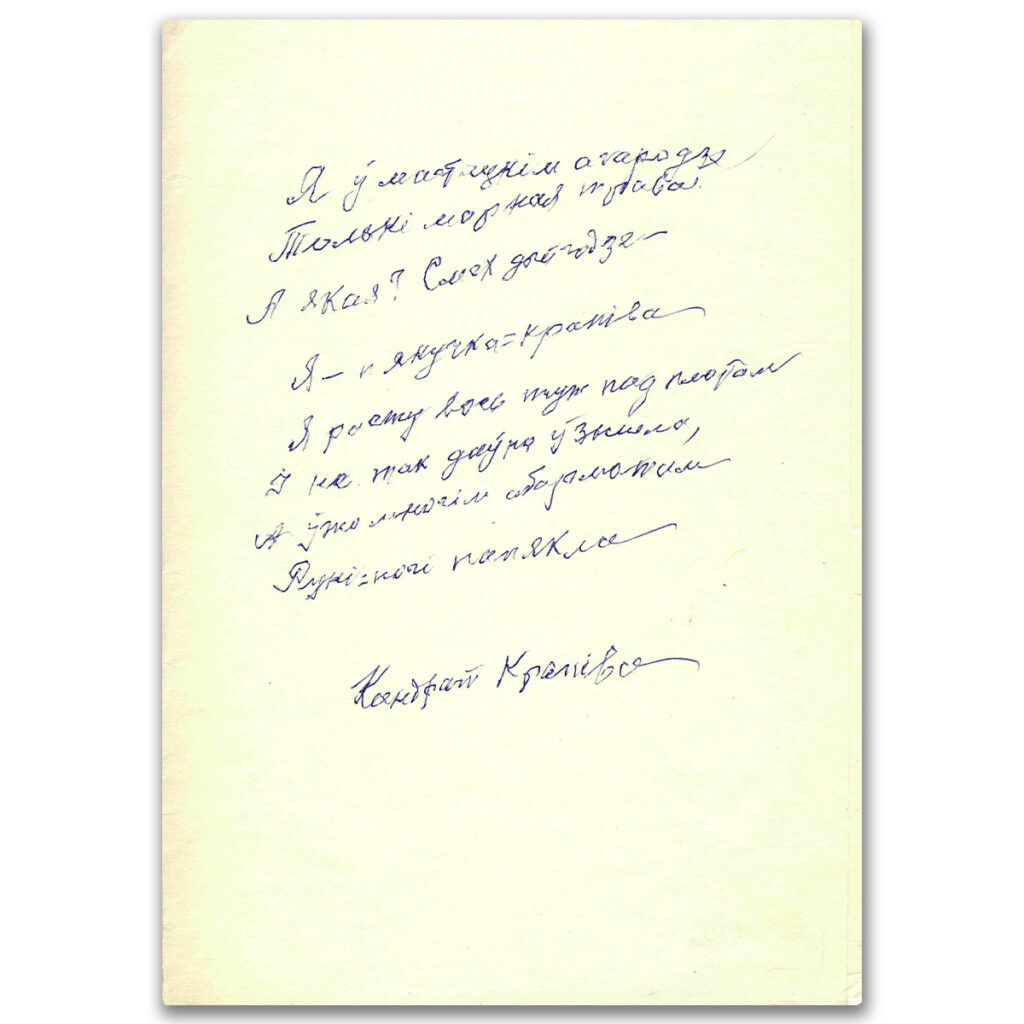 Я ў мастацкім агародзе
Толькі марная трава.
А якая? Смех дый годзе —
Я — пякучка=крапіва
Я расту вось тут под плотам
І не так даўно ўзышла,
А ўжо многім абармотам
Рукі=ногі папякла
Кандрат Крапіва